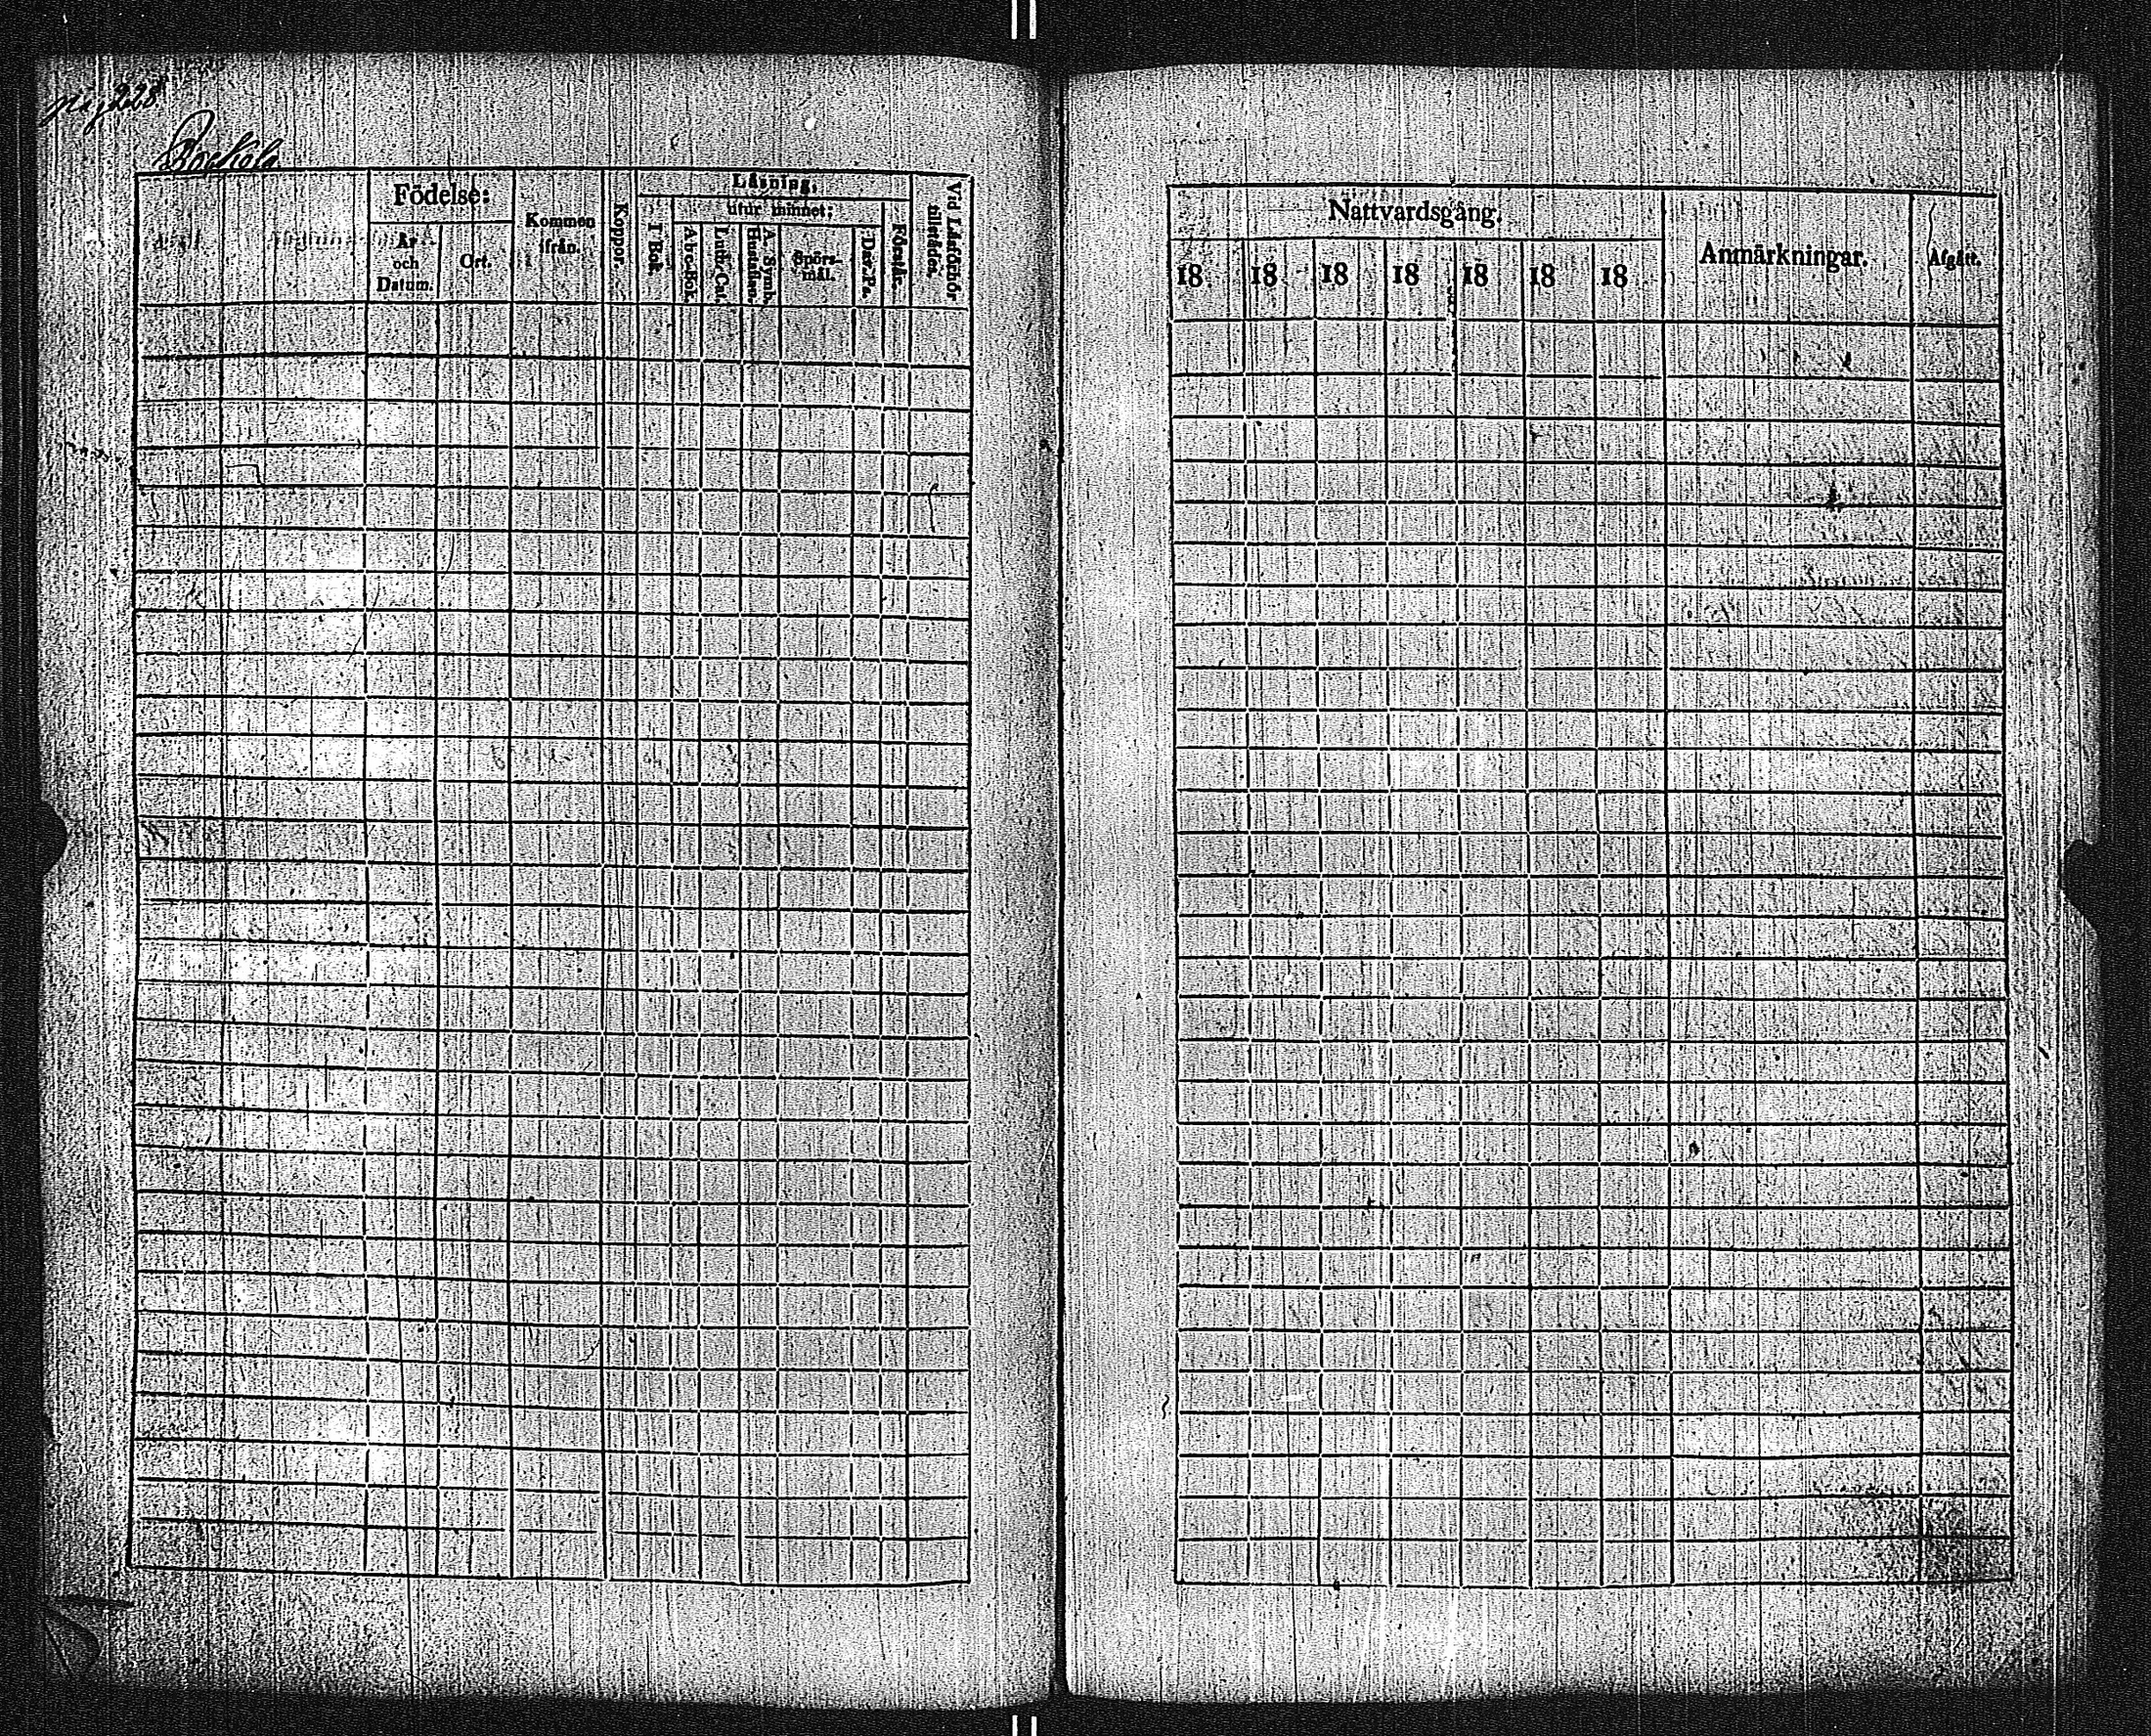 228
Födelse:
År och Datum.
Ort.
Kommen ifrån.
Koppor.
Läsning,
I Bok.
utur minnet:
A b c-Bok.
Luth. Cat.
A. Symb. Hustaflan.
Spörs-mål.
Dav. Ps.
Förstår.
Vid Läsförhör tillstädes.
Nattvardsgång.
18 18 18 18 18 18 18
Anmärkningar.
Afgått.